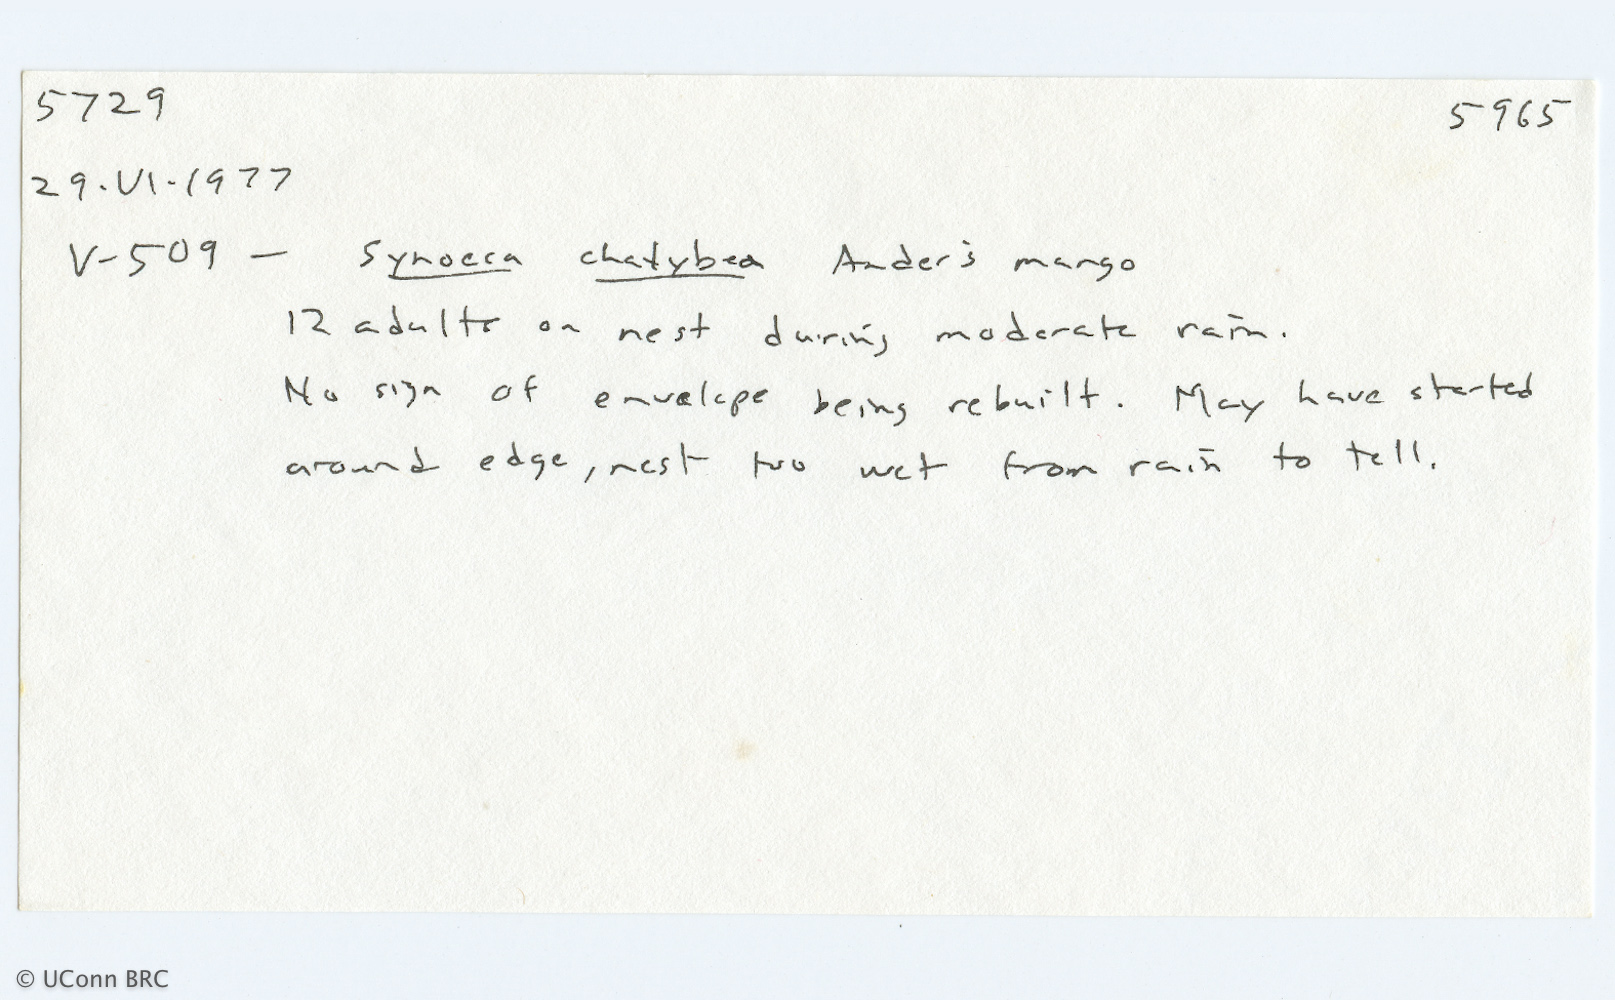 5729 5965
29.VI.1977
V-509 — Synoeca chalybea Ander's mango
12 adults on nest during moderate rain.
No sign of envelope being rebuilt. May have started
around edge, nest too wet from rain to tell.
© UConn BRC